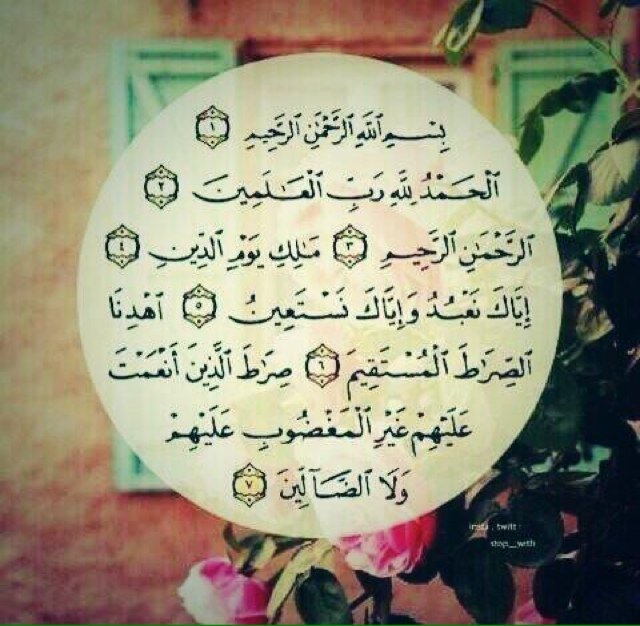 بِسْمِ ٱللَّهِ ٱلرَّحْمَٰنِ ٱلرَّحِيمِ ١
ٱلْحَمْدُ لِلَّهِ رَبِّ ٱلْعَـٰلَمِينَ ٢
ٱلرَّحْمَٰنِ ٱلرَّحِيمِ ٣ مَـٰلِكِ يَوْمِ ٱلدِّينِ ٤
إِيَّاكَ نَعْبُدُ وَإِيَّاكَ نَسْتَعِينُ ٥ ٱهْدِنَا
ٱلصِّرَٰطَ ٱلْمُسْتَقِيمَ ٦ صِرَٰطَ ٱلَّذِينَ أَنْعَمْتَ
عَلَيْهِمْ غَيْرِ ٱلْمَغْضُوبِ عَلَيْهِمْ
وَلَا ٱلضَّآلِّينَ ٧
insta . twitt :
stop__with